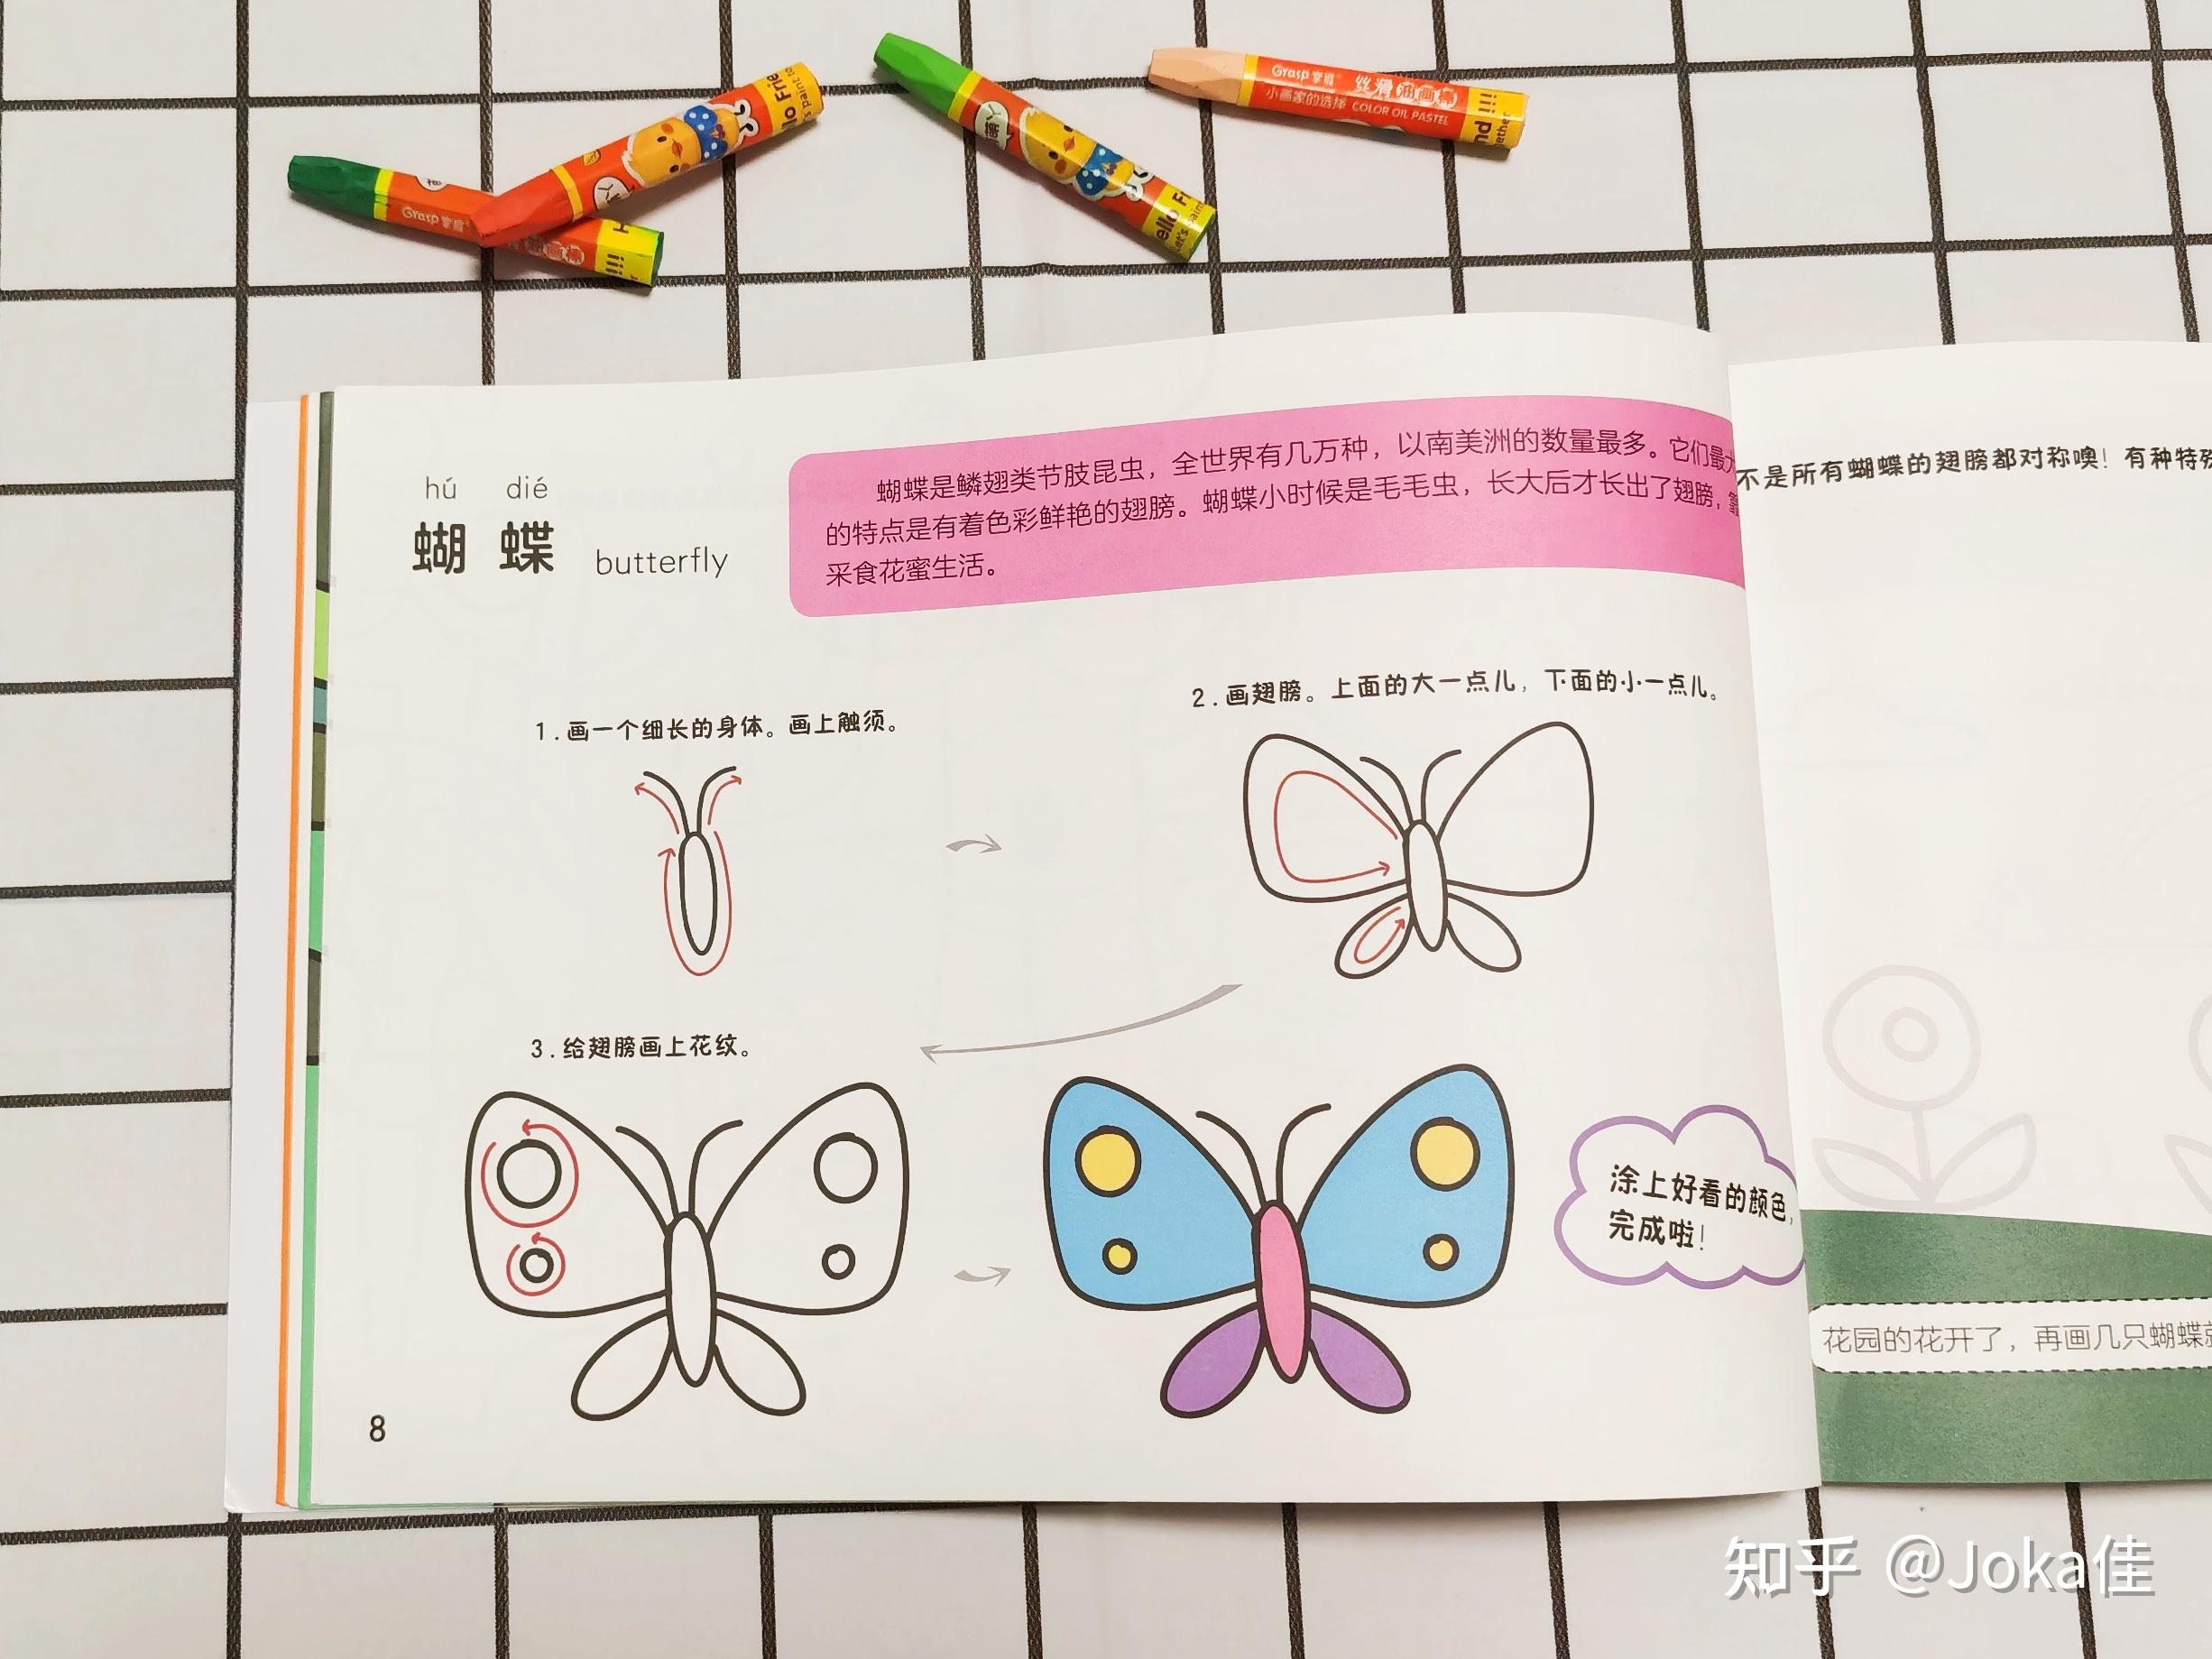 Grasp 掌握
Grasp 掌握 丝滑油画棒
小画家的选择 COLOR OIL PASTEL
hú dié
蝴 蝶 butterfly
蝴蝶是鳞翅类节肢昆虫，全世界有几万种，以南美洲的数量最多。它们最大
的特点是有着色彩鲜艳的翅膀。蝴蝶小时候是毛毛虫，长大后才长出了翅膀，靠
采食花蜜生活。
不是所有蝴蝶的翅膀都对称噢！有种特殊
1.画一个细长的身体。画上触须。
2.画翅膀。上面的大一点儿，下面的小一点儿。
3.给翅膀画上花纹。
涂上好看的颜色，
完成啦！
花园的花开了，再画几只蝴蝶就
8
知乎 @Joka佳